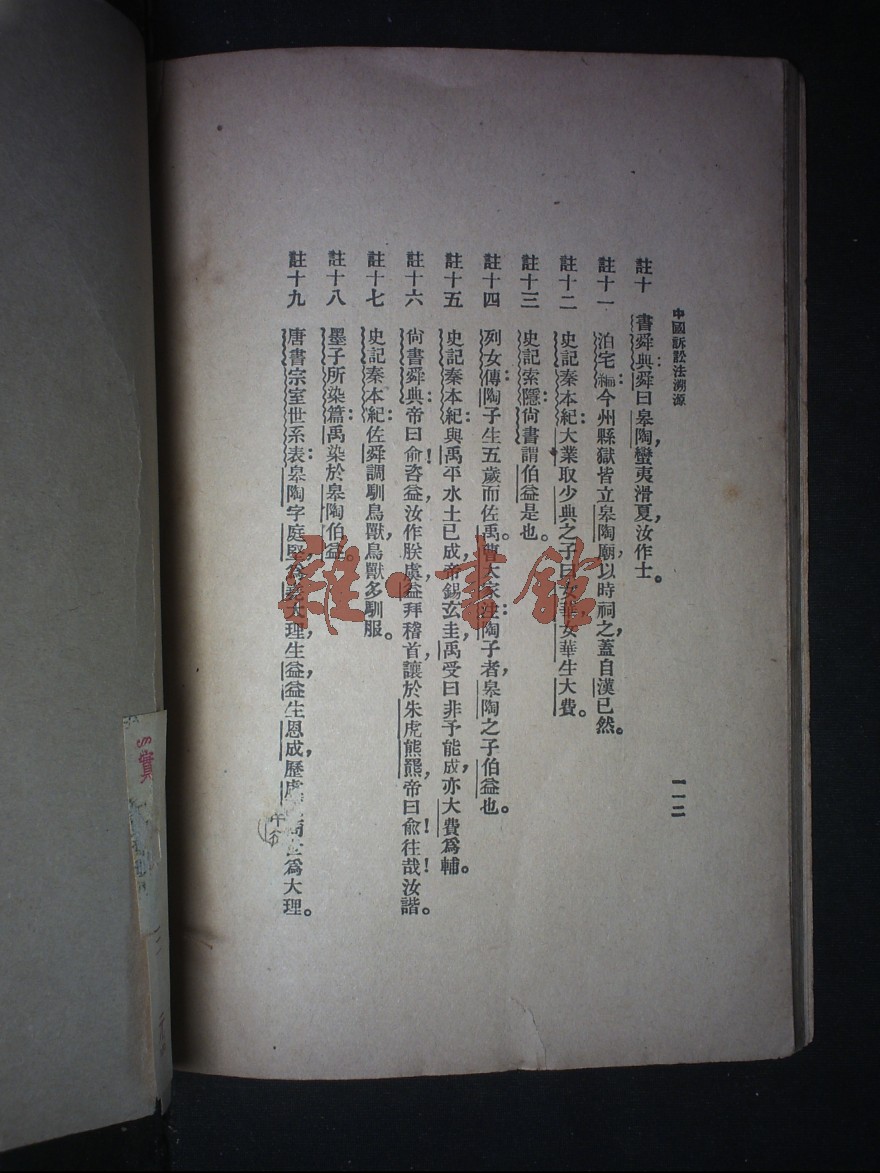 中國訴訟法溯源
一一二
註十　書舜典：舜曰皋陶，蠻夷滑夏，汝作士。
註十一　泊宅編：今州縣獄皆立皋陶廟，以時祠之，蓋自漢已然。
註十二　史記秦本紀：大業取少典之子曰女華，女華生大費。
註十三　史記索隱：尚書謂伯益是也。
註十四　列女傳：陶子生五歲而佐禹。曹大家注：陶子者，皋陶之子伯益也。
註十五　史記秦本紀：與禹平水土已成，帝錫玄圭，禹受曰非予能成，亦大費爲輔。
註十六　尚書舜典：帝曰俞！咨益，汝作朕虞，益拜稽首，讓於朱虎熊羆，帝曰俞！往哉！汝諧。
註十七　史記秦本紀：佐舜調馴鳥獸，鳥獸多馴服。
註十八　墨子所染篇：禹染於皋陶伯益。
註十九　唐書宗室世系表：皋陶字庭堅，爲堯大理，生益，益生恩成，歷虞爲大理。
雜·書館